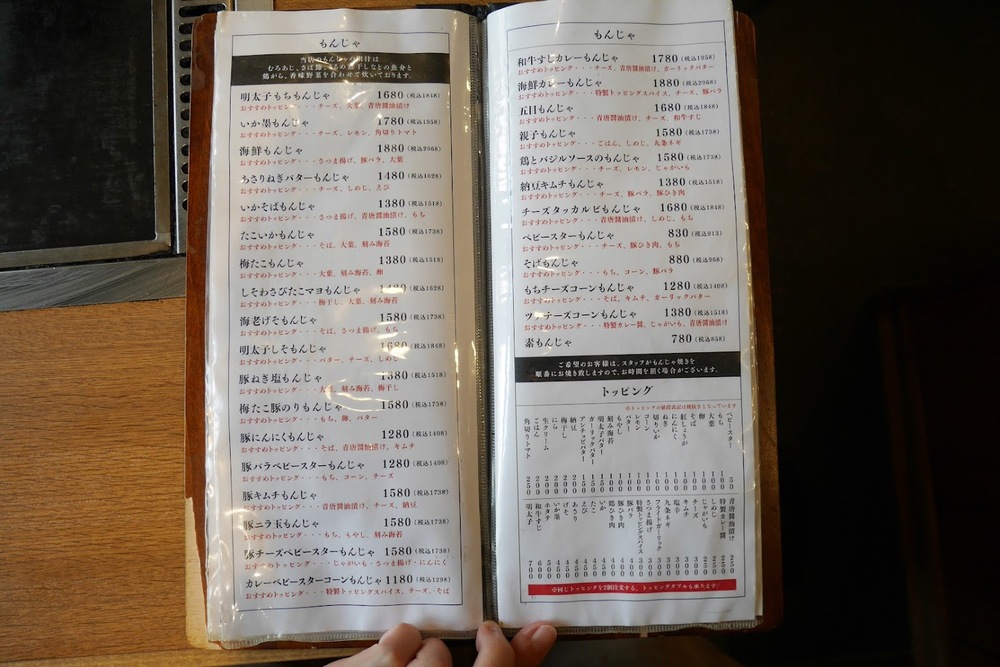 もんじゃ
当店のもんじゃの出汁は
むろあじ、さば節、
煮干しなどの魚介と
鶏がら、香味野菜を合わせて炊いております。
明太子もちもんじゃ 1680(税込1848)
おすすめトッピング・・・チーズ、大葉、青唐醤油漬け
いか墨もんじゃ 1780(税込1958)
おすすめトッピング・・・チーズ、レモン、角切りトマト
海鮮もんじゃ 1880(税込2068)
おすすめトッピング・・・さつま揚げ、豚バラ、大葉
あさりねぎバターもんじゃ 1480(税込1628)
おすすめトッピング・・・チーズ、しめじ、えび
いかそばもんじゃ 1380(税込1518)
おすすめトッピング・・・さつま揚げ、青唐醤油漬け、もち
たこいかもんじゃ 1580(税込1738)
おすすめトッピング・・・そば、大葉、刻み海苔
梅たこもんじゃ 1380(税込1518)
おすすめトッピング・・・大葉、刻み海苔、卵
しそわさびたこマヨもんじゃ 1480(税込1628)
おすすめトッピング・・・梅干し、大葉、刻み海苔
海老げそもんじゃ 1580(税込1738)
おすすめトッピング・・・そば、さつま揚げ、もち
明太子しそもんじゃ 1680(税込1848)
おすすめトッピング・・・バター、チーズ、しめじ
豚ねぎ塩もんじゃ 1380(税込1518)
おすすめトッピング・・・大葉、刻み海苔、梅干し
梅たこ豚のりもんじゃ 1580(税込1738)
おすすめトッピング・・・もち、卵、バター
豚にんにくもんじゃ 1280(税込1408)
おすすめトッピング・・・そば、青唐醤油漬け、キムチ
豚バラベビースターもんじゃ 1280(税込1408)
おすすめトッピング・・・もち、コーン、チーズ
豚キムチもんじゃ 1580(税込1738)
おすすめトッピング・・・青唐醤油漬け、チーズ、納豆
豚ニラ玉もんじゃ 1580(税込1738)
おすすめトッピング・・・もち、もやし、刻み海苔
豚チーズベビースターもんじゃ 1580(税込1738)
おすすめトッピング・・・じゃがいも・さつま揚げ・にんにく
カレーベビースターコーンもんじゃ 1180(税込1298)
おすすめトッピング・・・特製トッピングスパイス、チーズ、そば
もんじゃ
和牛すじカレーもんじゃ 1780(税込1958)
おすすめトッピング・・・チーズ、青唐醤油漬け、ガーリックバター
海鮮カレーもんじゃ 1880(税込2068)
おすすめトッピング・・・特製トッピングスパイス、チーズ、豚バラ
五目もんじゃ 1680(税込1848)
おすすめトッピング・・・青唐醤油漬け、チーズ、和牛すじ
親子もんじゃ 1580(税込1738)
おすすめトッピング・・・ごはん、しめじ、九条ネギ
鶏とバジルソースのもんじゃ 1580(税込1738)
おすすめトッピング・・・チーズ、レモン、じゃがいも
納豆キムチもんじゃ 1380(税込1518)
おすすめトッピング・・・チーズ、豚バラ、豚ひき肉
チーズタッカルビもんじゃ 1680(税込1848)
おすすめトッピング・・・青唐醤油漬け、しめじ、もち
ベビースターもんじゃ 830(税込913)
おすすめトッピング・・・チーズ、豚ひき肉、もち
そばもんじゃ 880(税込968)
おすすめトッピング・・・もち、コーン、豚バラ
もちチーズコーンもんじゃ 1280(税込1408)
おすすめトッピング・・・そば、キムチ、ガーリックバター
ツナチーズコーンもんじゃ 1380(税込1518)
おすすめトッピング・・・特製カレー醤、じゃがいも、青唐醤油漬け
素もんじゃ 780(税込858)
ご希望のお客様は、スタッフがもんじゃ焼きを
順番にお焼き致しますので、お時間を頂く場合がございます。
トッピング
※トッピングの値段表記は税抜きとなっています
ベビースター 50
もち 100
大葉 100
卵 100
そば 100
紅しょうが 100
にんにく 100
ねぎ 100
切りいか 100
コーン 100
レモン 100
バター 100
もやし 100
刻み海苔 100
明太子バター
ガーリックバター 150
アンチョビバター
納豆 200
梅干し 200
にら 200
生クリーム 200
ごはん 200
角切りトマト 250
青唐醤油漬け 250
特製カレー醤 250
しめじ 250
じゃがいも 250
チーズ 300
キムチ 300
塩辛 300
九条ネギ 300
フライドガーリック
さつま揚げ
特製トッピングスパイス
豚バラ
豚ひき肉
鶏ひき肉
いか
たこ
えび
あさり
げそ
いか墨
ホタテ
和牛すじ 600
明太子 700
※同じトッピングを2個注文する、トッピングダブルも承ります。